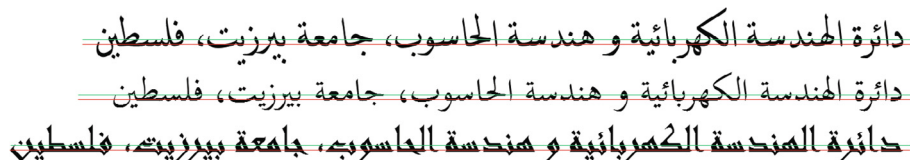 دائرة الهندسة الكهربائية و هندسة الحاسوب، جامعة بيرزيت، فلسطين
دائرة الهندسة الكهربائية و هندسة الحاسوب، جامعة بيرزيت، فلسطين
دائرة الهندسة الكهربائية و هندسة الحاسوب، جامعة بيرزيت، فلسطين